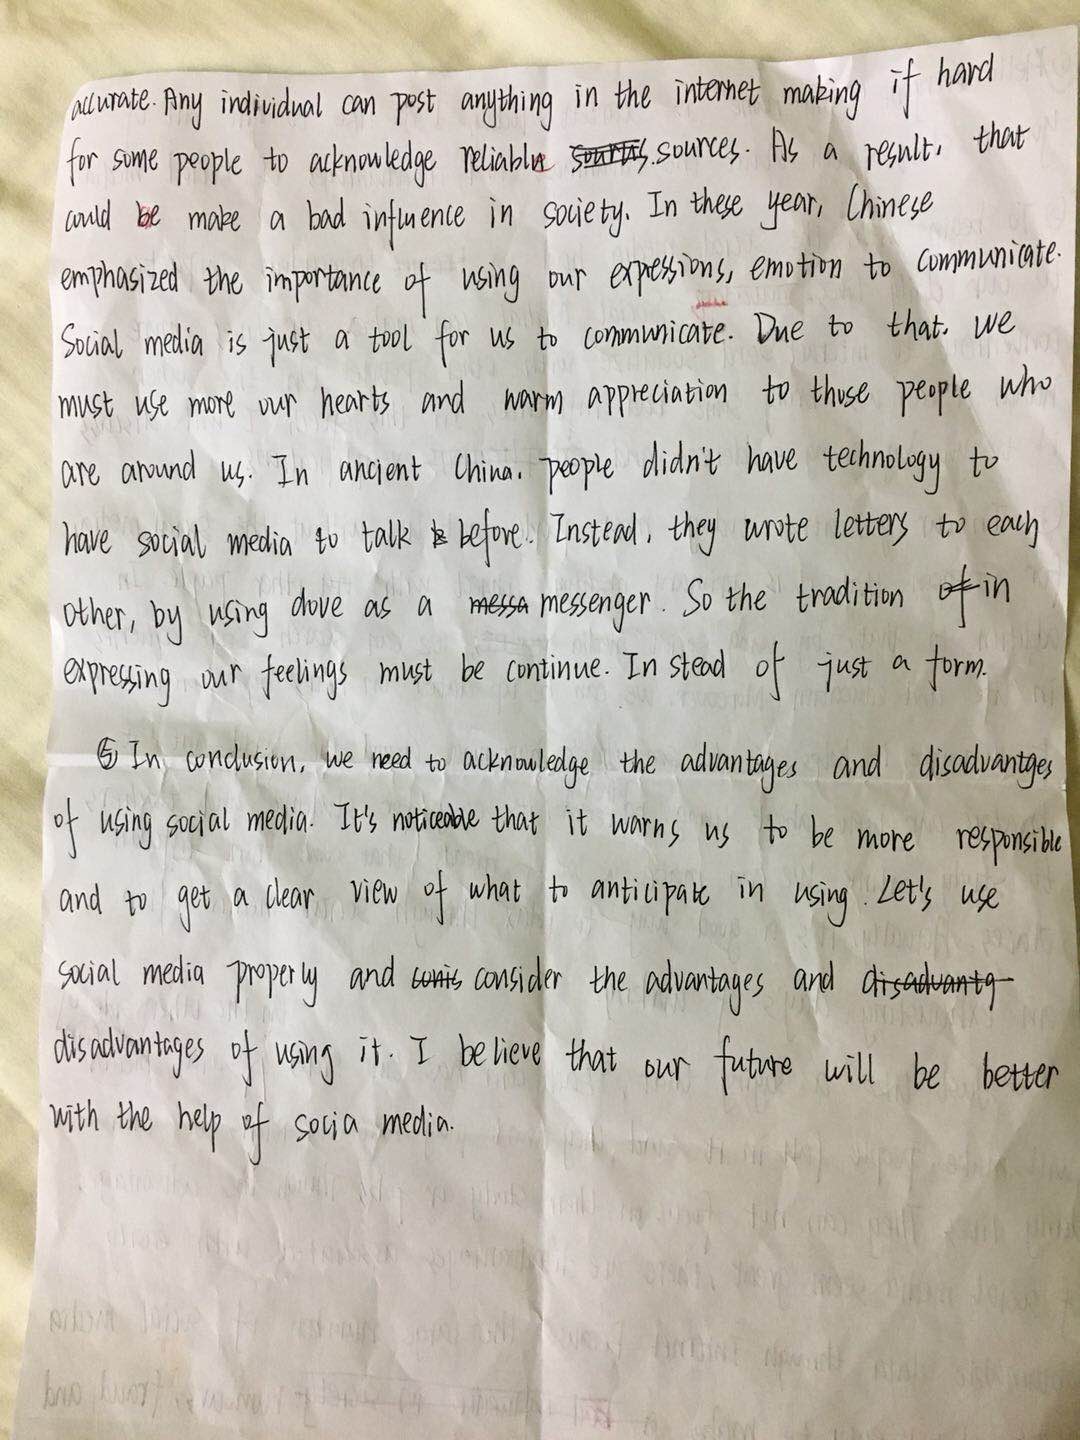 accurate. Any individual can post anything in the internet making if hard
for some people to acknowledge reliable sources. As a result, that
could be make a bad influence in society. In these year, Chinese
emphasized the importance of using our expressions, emotion to communicate.
Social media is just a tool for us to communicate. Due to that, we
must use more our hearts and warm appreciation to those people who
are around us. In ancient China, people didn't have technology to
have social media to talk before. Instead, they wrote letters to each
other, by using dove as a messa messenger. So the tradition of in
expressing our feelings must be continue. In stead of just a form.
⑤ In conclusion, we need to acknowledge the advantages and disadvantges
of using social media. It's noticeable that it warns us to be more responsible
and to get a clear view of what to anticipate in using. Let's use
social media properly and conis consider the advantages and disadvantg
disadvantages of using it. I believe that our future will be better
with the help of socia media.